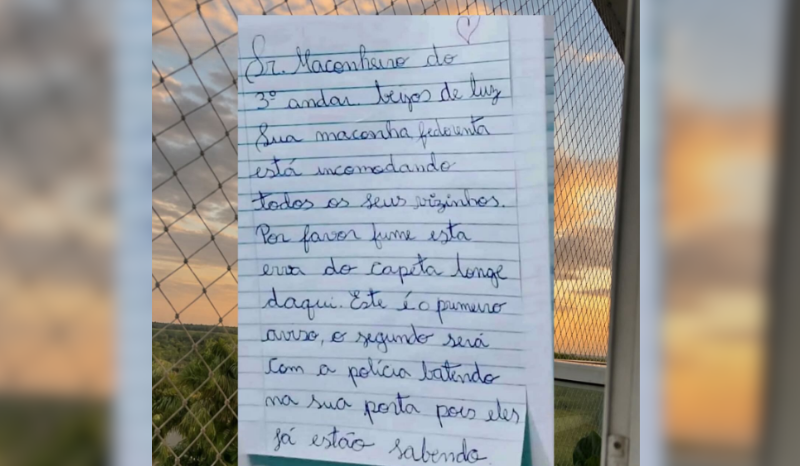 Sr. Maconheiro do
3º andar. beijos de luz
Sua maconha fedorenta
está incomodando
todos os seus vizinhos.
Por favor fume esta
erva do capeta longe
daqui. Este é o primeiro
aviso, o segundo será
com a polícia batendo
na sua porta pois eles
já estão sabendo.